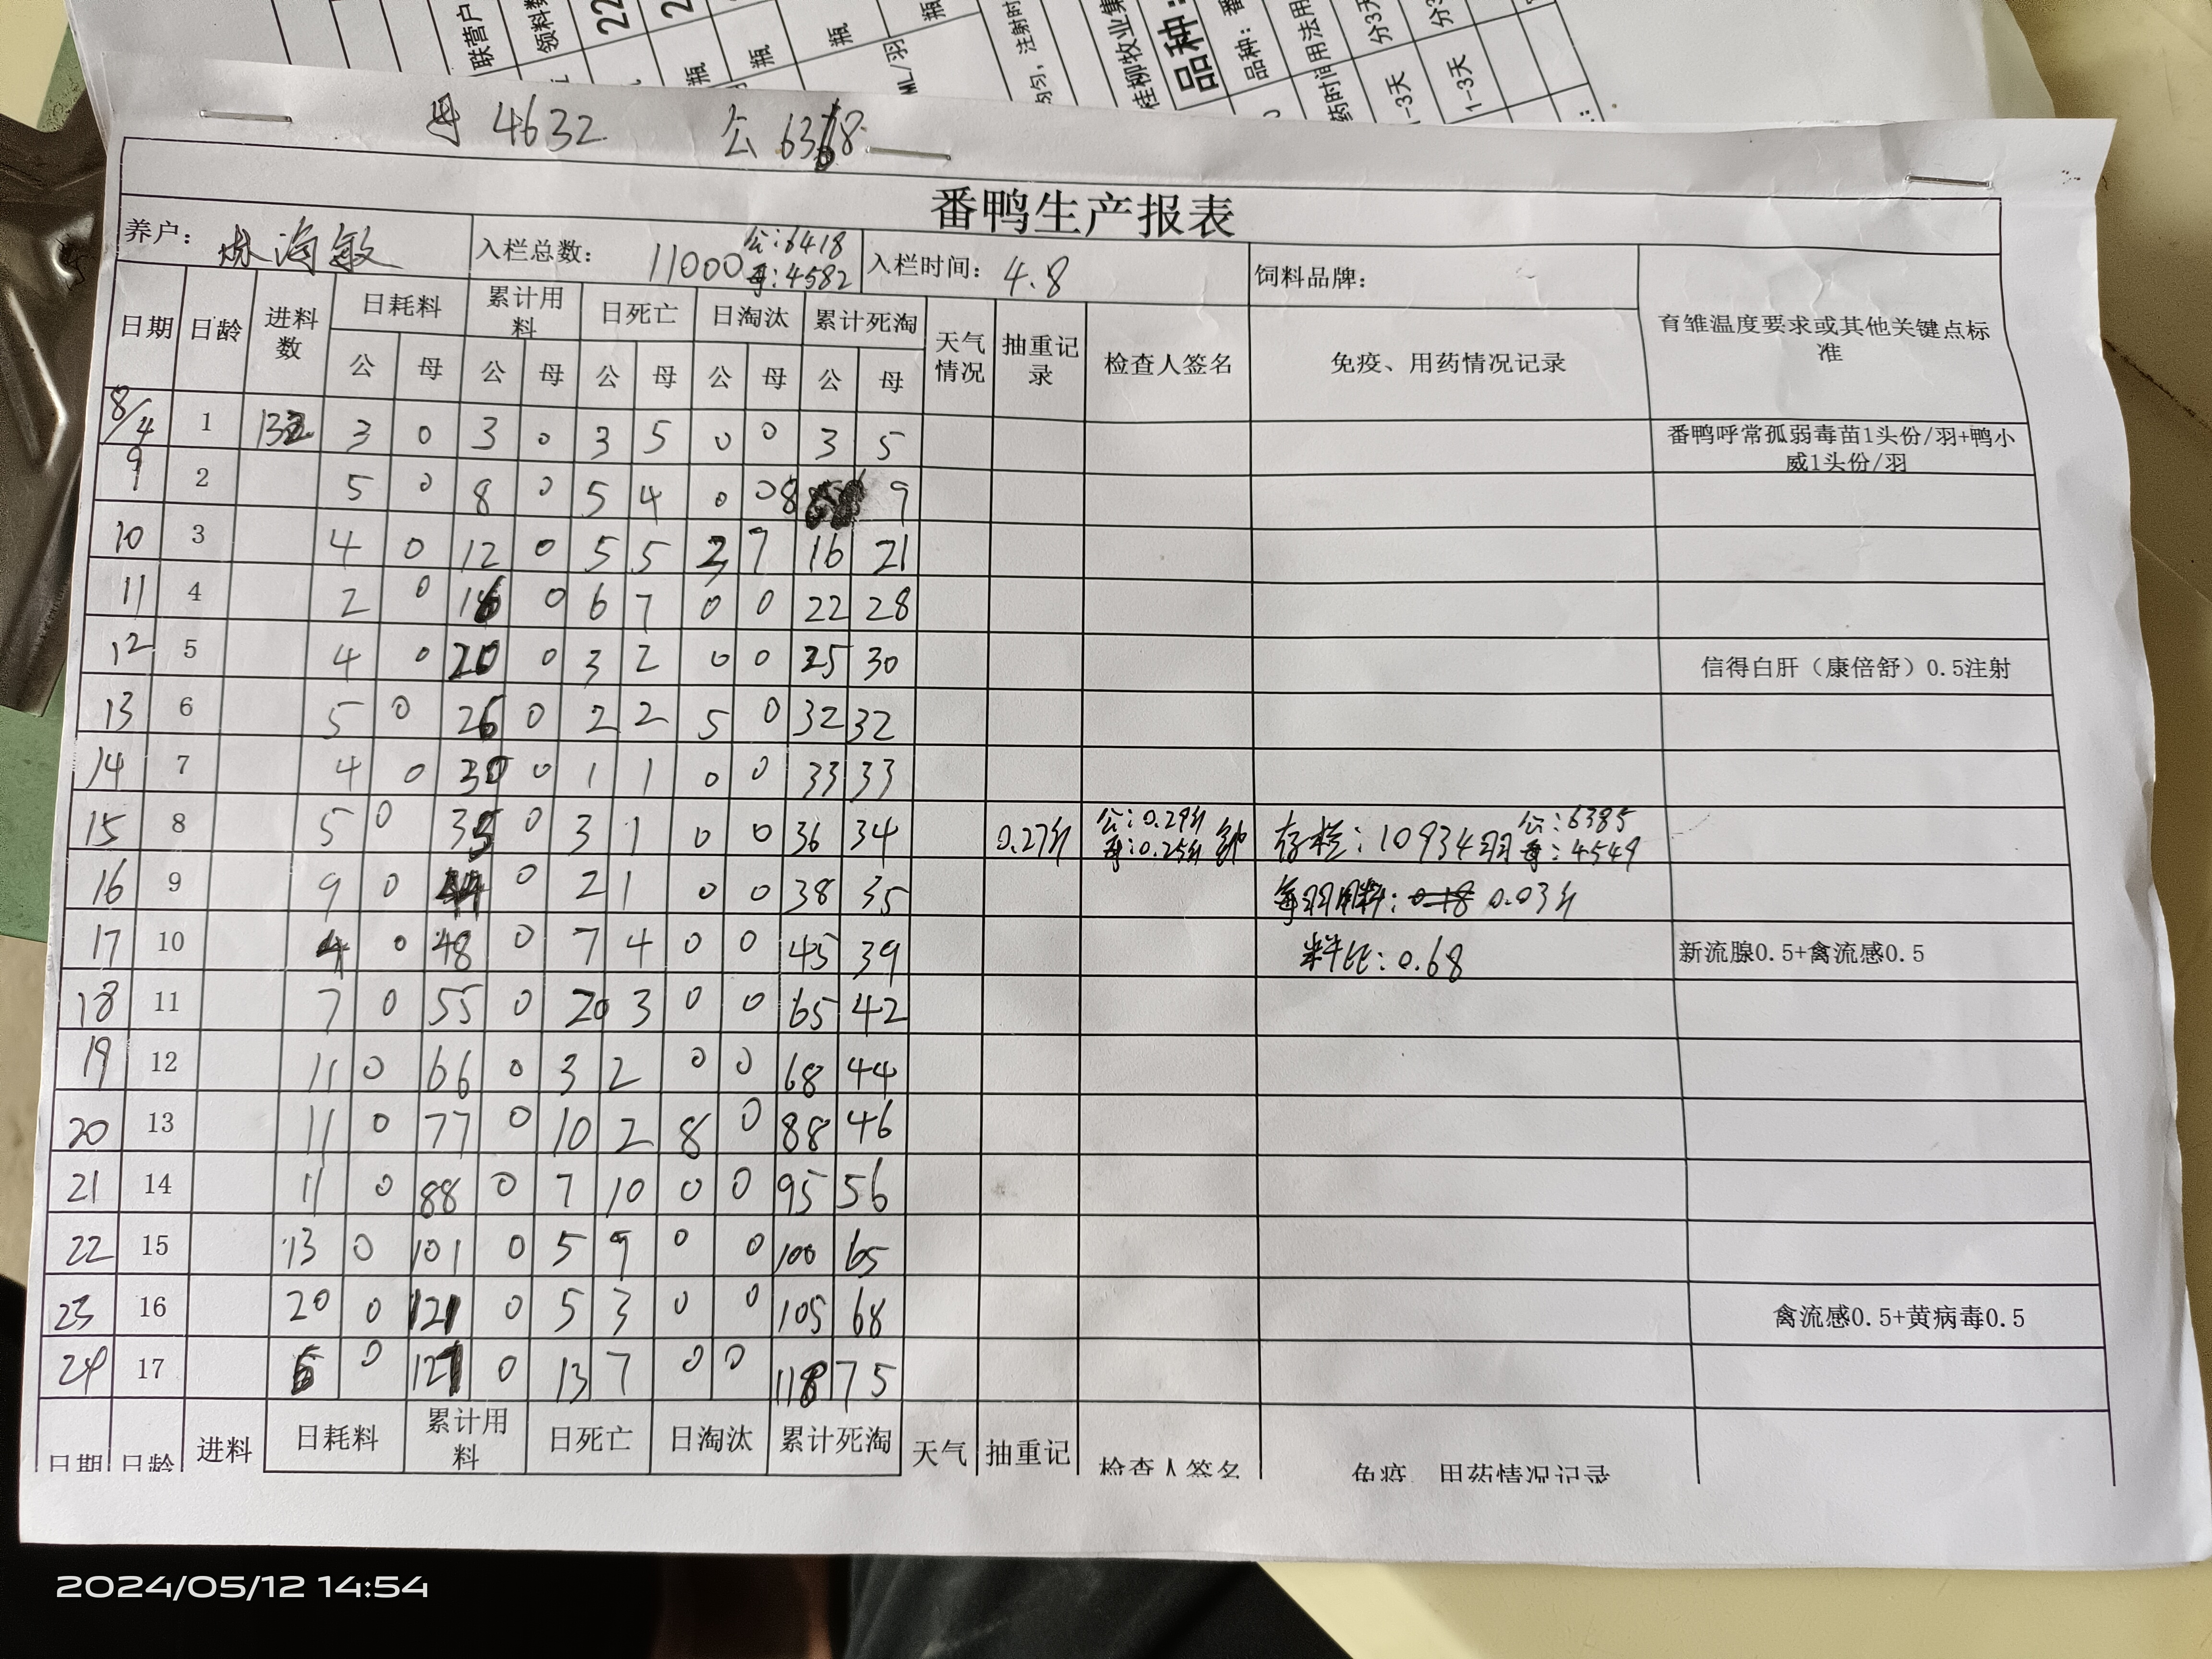 联营户
领料数
瓶
瓶
瓶
瓶
ML/羽
桂柳牧业集
品种：
品种： 番
药时间用法用
分3天
1-3天
1-3天
母 4632 公 6368
番鸭生产报表
养户： 海敏 入栏总数： 11000 公:6418 母:4582 入栏时间： 4.8 饲料品牌：
日期 日龄 进料数 日耗料 累计用料 日死亡 日淘汰 累计死淘 天气情况 抽重记录 检查人签名 免疫、用药情况记录 育雏温度要求或其他关键点标准
公 母 公 母 公 母 公 母 公 母
8/4 1 132 3 0 3 0 3 5 0 0 3 5 番鸭呼常孤弱毒苗1头份/羽+鸭小威1头份/羽
9 2 5 0 8 0 5 4 0 0 8 9
10 3 4 0 12 0 5 5 2 7 16 21
11 4 2 0 16 0 6 7 0 0 22 28
12 5 4 0 20 0 3 2 0 0 25 30 信得白肝（康倍舒）0.5注射
13 6 5 0 26 0 2 2 5 0 32 32
14 7 4 0 30 0 1 1 0 0 33 33
15 8 5 0 35 0 3 1 0 0 36 34 0.27斤 公:0.29斤 母:0.25斤 存栏:10934羽 公:6385 母:4549
16 9 9 0 44 0 2 1 0 0 38 35 每羽用料: 0.18 0.03斤
17 10 4 0 48 0 7 4 0 0 45 39 料比:0.68 新流腺0.5+禽流感0.5
18 11 7 0 55 0 20 3 0 0 65 42
19 12 11 0 66 0 3 2 0 0 68 44
20 13 11 0 77 0 10 2 8 0 88 46
21 14 11 0 88 0 7 10 0 0 95 56
22 15 13 0 101 0 5 9 0 0 100 65
23 16 20 0 121 0 5 3 0 0 105 68 禽流感0.5+黄病毒0.5
24 17 6 0 127 0 13 7 0 0 118 75
日期 日龄 进料 日耗料 累计用料 日死亡 日淘汰 累计死淘 天气 抽重记 检查人签名 免疫、用药情况记录
2024/05/12 14:54